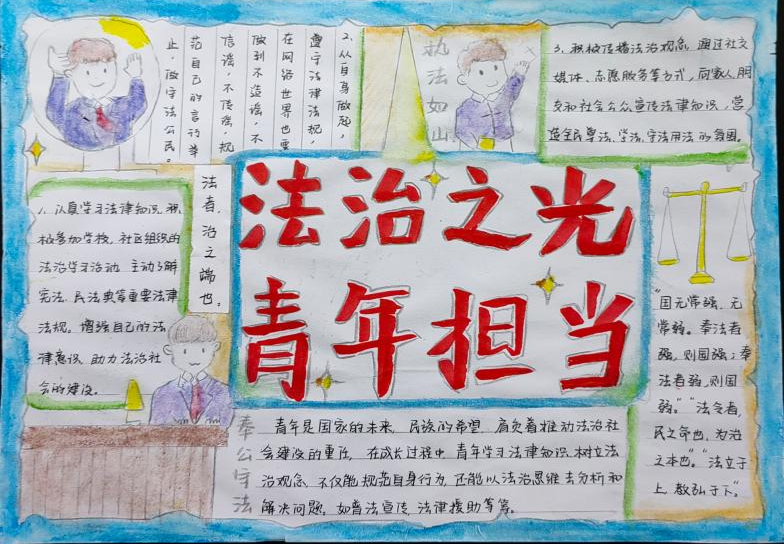 法治之光
青年担当
1、认真学习法律知识，积
极参加学校、社区组织的
法治学习活动，主动了解
宪法、民法典等重要法律
法规，增强自己的法
律意识，助力法治社
会的建设。
2、从自身做起，
遵守法律法规，
在网络世界也要
做到不造谣，不
信谣，不传谣，规
范自己的言行举
止，做守法公民。
3、积极传播法治观念，通过社交
媒体、志愿服务等方式，向家人、朋
友和社会公众宣传法律知识，营
造全民尊法、学法、守法用法的氛围。
执法如山
法者，治之端也。
奉公守法
青年是国家的未来，民族的希望，肩负着推动法治社
会建设的重任，在成长过程中，青年学习法律知识，树立法
治观念，不仅能规范自身行为，还能以法治思维去分析和
解决问题。如普法宣传，法律援助等等。
“国无常强，无
常弱。奉法者
强，则国强；奉
法者弱，则国
弱。”“法令者，
民之命也，为治
之本也。”“法立于
上，教弘于下”。